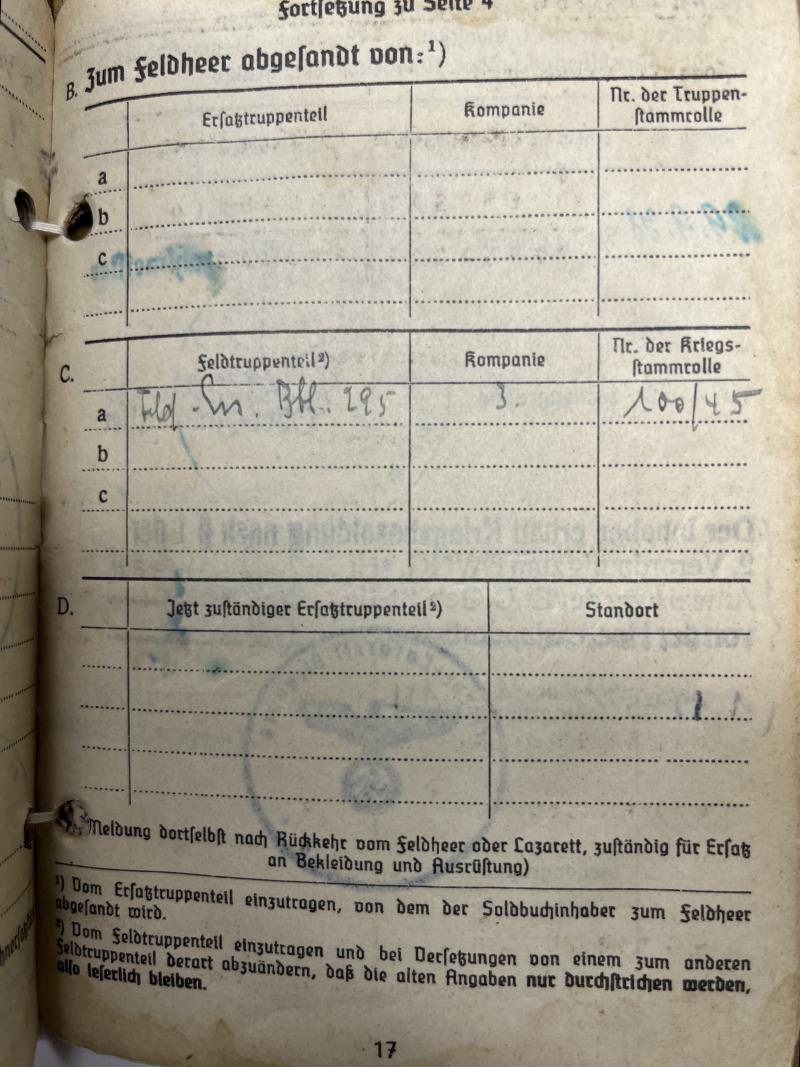 Fortsetzung zu Seite 4
B. Zum Feldheer abgesandt von:¹)
Ersatztruppenteil Kompanie Nr. der Truppen-
stammrolle
a
b
c
C. Feldtruppenteil²) Kompanie Nr. der Kriegs-
stammrolle
a Btl. 295 3. 100/45
b
c
D. Jetzt zuständiger Ersatztruppenteil²) Standort
Meldung dortselbst nach Rückkehr vom Feldheer oder Lazarett, zuständig für Ersatz
an Bekleidung und Ausrüstung)
¹) Vom Ersatztruppenteil einzutragen, von dem der Soldbuchinhaber zum Feldheer
abgesandt wird.
²) Vom Feldtruppenteil einzutragen und bei Versetzungen von einem zum anderen
Feldtruppenteil derart abzuändern, daß die alten Angaben nur durchstrichen werden,
also leserlich bleiben.
17